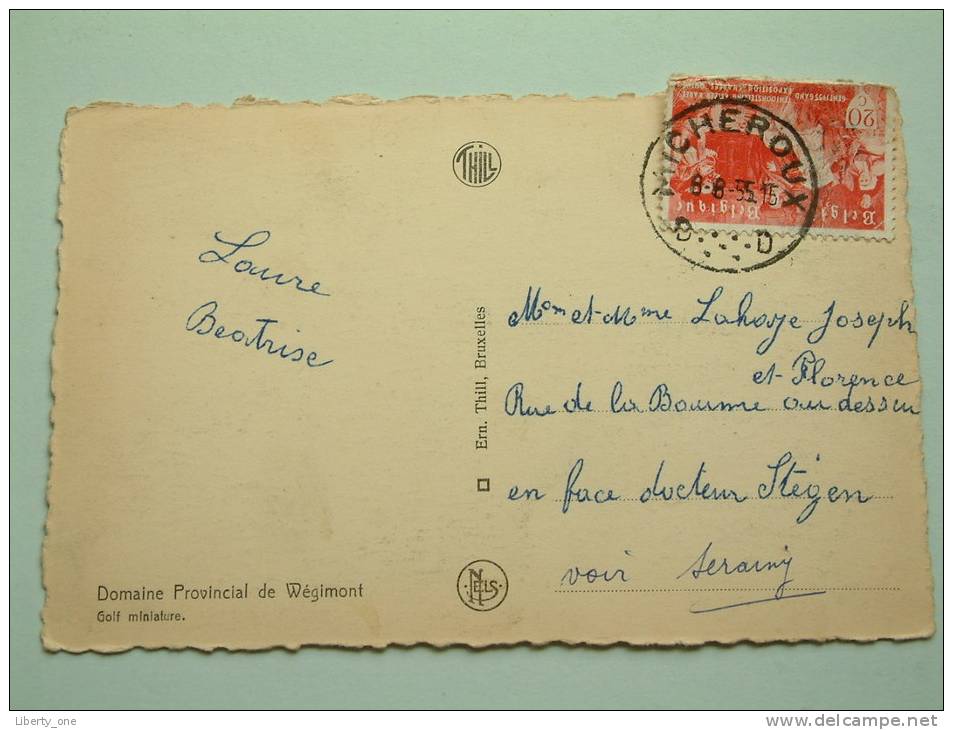 THILL
MICHEROUX
8-8-55.15
D D
20 C
GENT 1955 GAND
Belgique België
Laure
Beatrise
Mom et Mme Lahaye Joseph
et Florence
Rue de la Boume au dessu
en face docteur Stégen
voir seraing
Ern. Thill, Bruxelles
NELS
Domaine Provincial de Wégimont
Golf miniature.
Liberty_one
www.delcampe.net